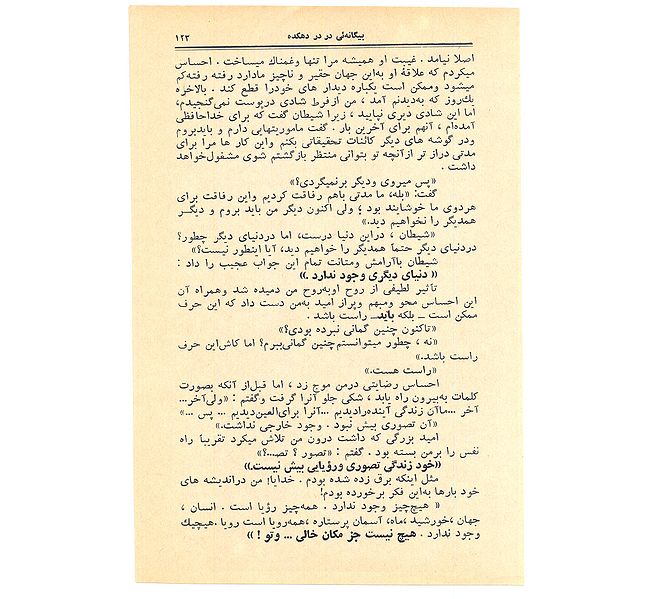 بیگانه‌ئی در در دهکده ۱۲۳
اصلا نیامد . غیبت او همیشه مرا تنها وغمناك میساخت . احساس
میکردم که علاقهٔ او به‌این جهان حقیر و ناچیز مادارد رفته رفته‌کم
میشود وممکن است یکباره دیدار های خودرا قطع کند . بالاخره
یك‌روز که به‌دیدنم آمد ، من ازفرط شادی درپوست نمی‌گنجیدم،
اما این شادی دیری نپایید ، زیرا شیطان گفت که برای خداحافظی
آمده‌ام ، آنهم برای آخرین بار . گفت ماموریتهایی دارم و بایدبروم
ودر گوشه های دیگر کائنات تحقیقاتی بکنم واین کار ها مرا برای
مدتی دراز تر ازآنچه تو بتوانی منتظر بازگشتم شوی مشغول‌خواهد
داشت .
«پس میروی ودیگر برنمیگردی؟»
گفت: «بله، ما مدتی باهم رفاقت کردیم واین رفاقت برای
هردوی ما خوشایند بود ؛ ولی اکنون دیگر من باید بروم و دیگـر
همدیگر را نخواهیم دید.»
«شیطان ، دراین دنیا درست، اما دردنیای دیگر چطور؟
دردنیای دیگر حتماً همدیگر را خواهیم دید، آیا اینطور نیست؟»
شیطان باآرامش ومتانت تمام این جواب عجیب را داد :
(( دنیای دیگری وجود ندارد .))
تأثیر لطیفی از روح اوبه‌روح من دمیده شد وهمراه آن
این احساس محو ومبهم وپراز امید به‌من دست داد که این حرف
ممکن است ــ بلکه باید‌ــ راست باشد .
«تاکنون چنین گمانی نبرده بودی؟»
«نه ، چطور میتوانستم‌چنین گمانی‌ببرم؟ اما کاش‌این حرف
راست باشد.»
«راست هست.»
احساس رضایتی درمن موج زد ، اما قبل‌از آنکه بصورت
کلمات به‌بیرون راه یابد ، شکی جلو آنرا گرفت وگفتم : «ولی‌آخر...
آخر ...ماآن زندگی آینده‌رادیدیم ...آنرا برای‌العین‌دیدیم ... پس ...»
«آن تصوری بیش نبود . وجود خارجی نداشت.»
امید بزرگی که داشت درون من تلاش میکرد تقریباً راه
نفس را برمن بسته بود . گفتم : «تصور ؟ تصـ...؟»
((خود زندگی تصوری ورؤیایی بیش نیست.))
مثل اینکه برق زده شده بودم . خدایا! من دراندیشه های
خود بارها به‌این فکر برخورده بودم!
« هیچ‌چیز وجود ندارد . همه‌چیز رؤیا است . انسان ،
جهان ،خورشید ،ماه، آسمان پرستاره ،همه‌رویا است رویا .هیچیك
وجود ندارد . هیچ نیست جز مکان خالی ... وتو ! ))